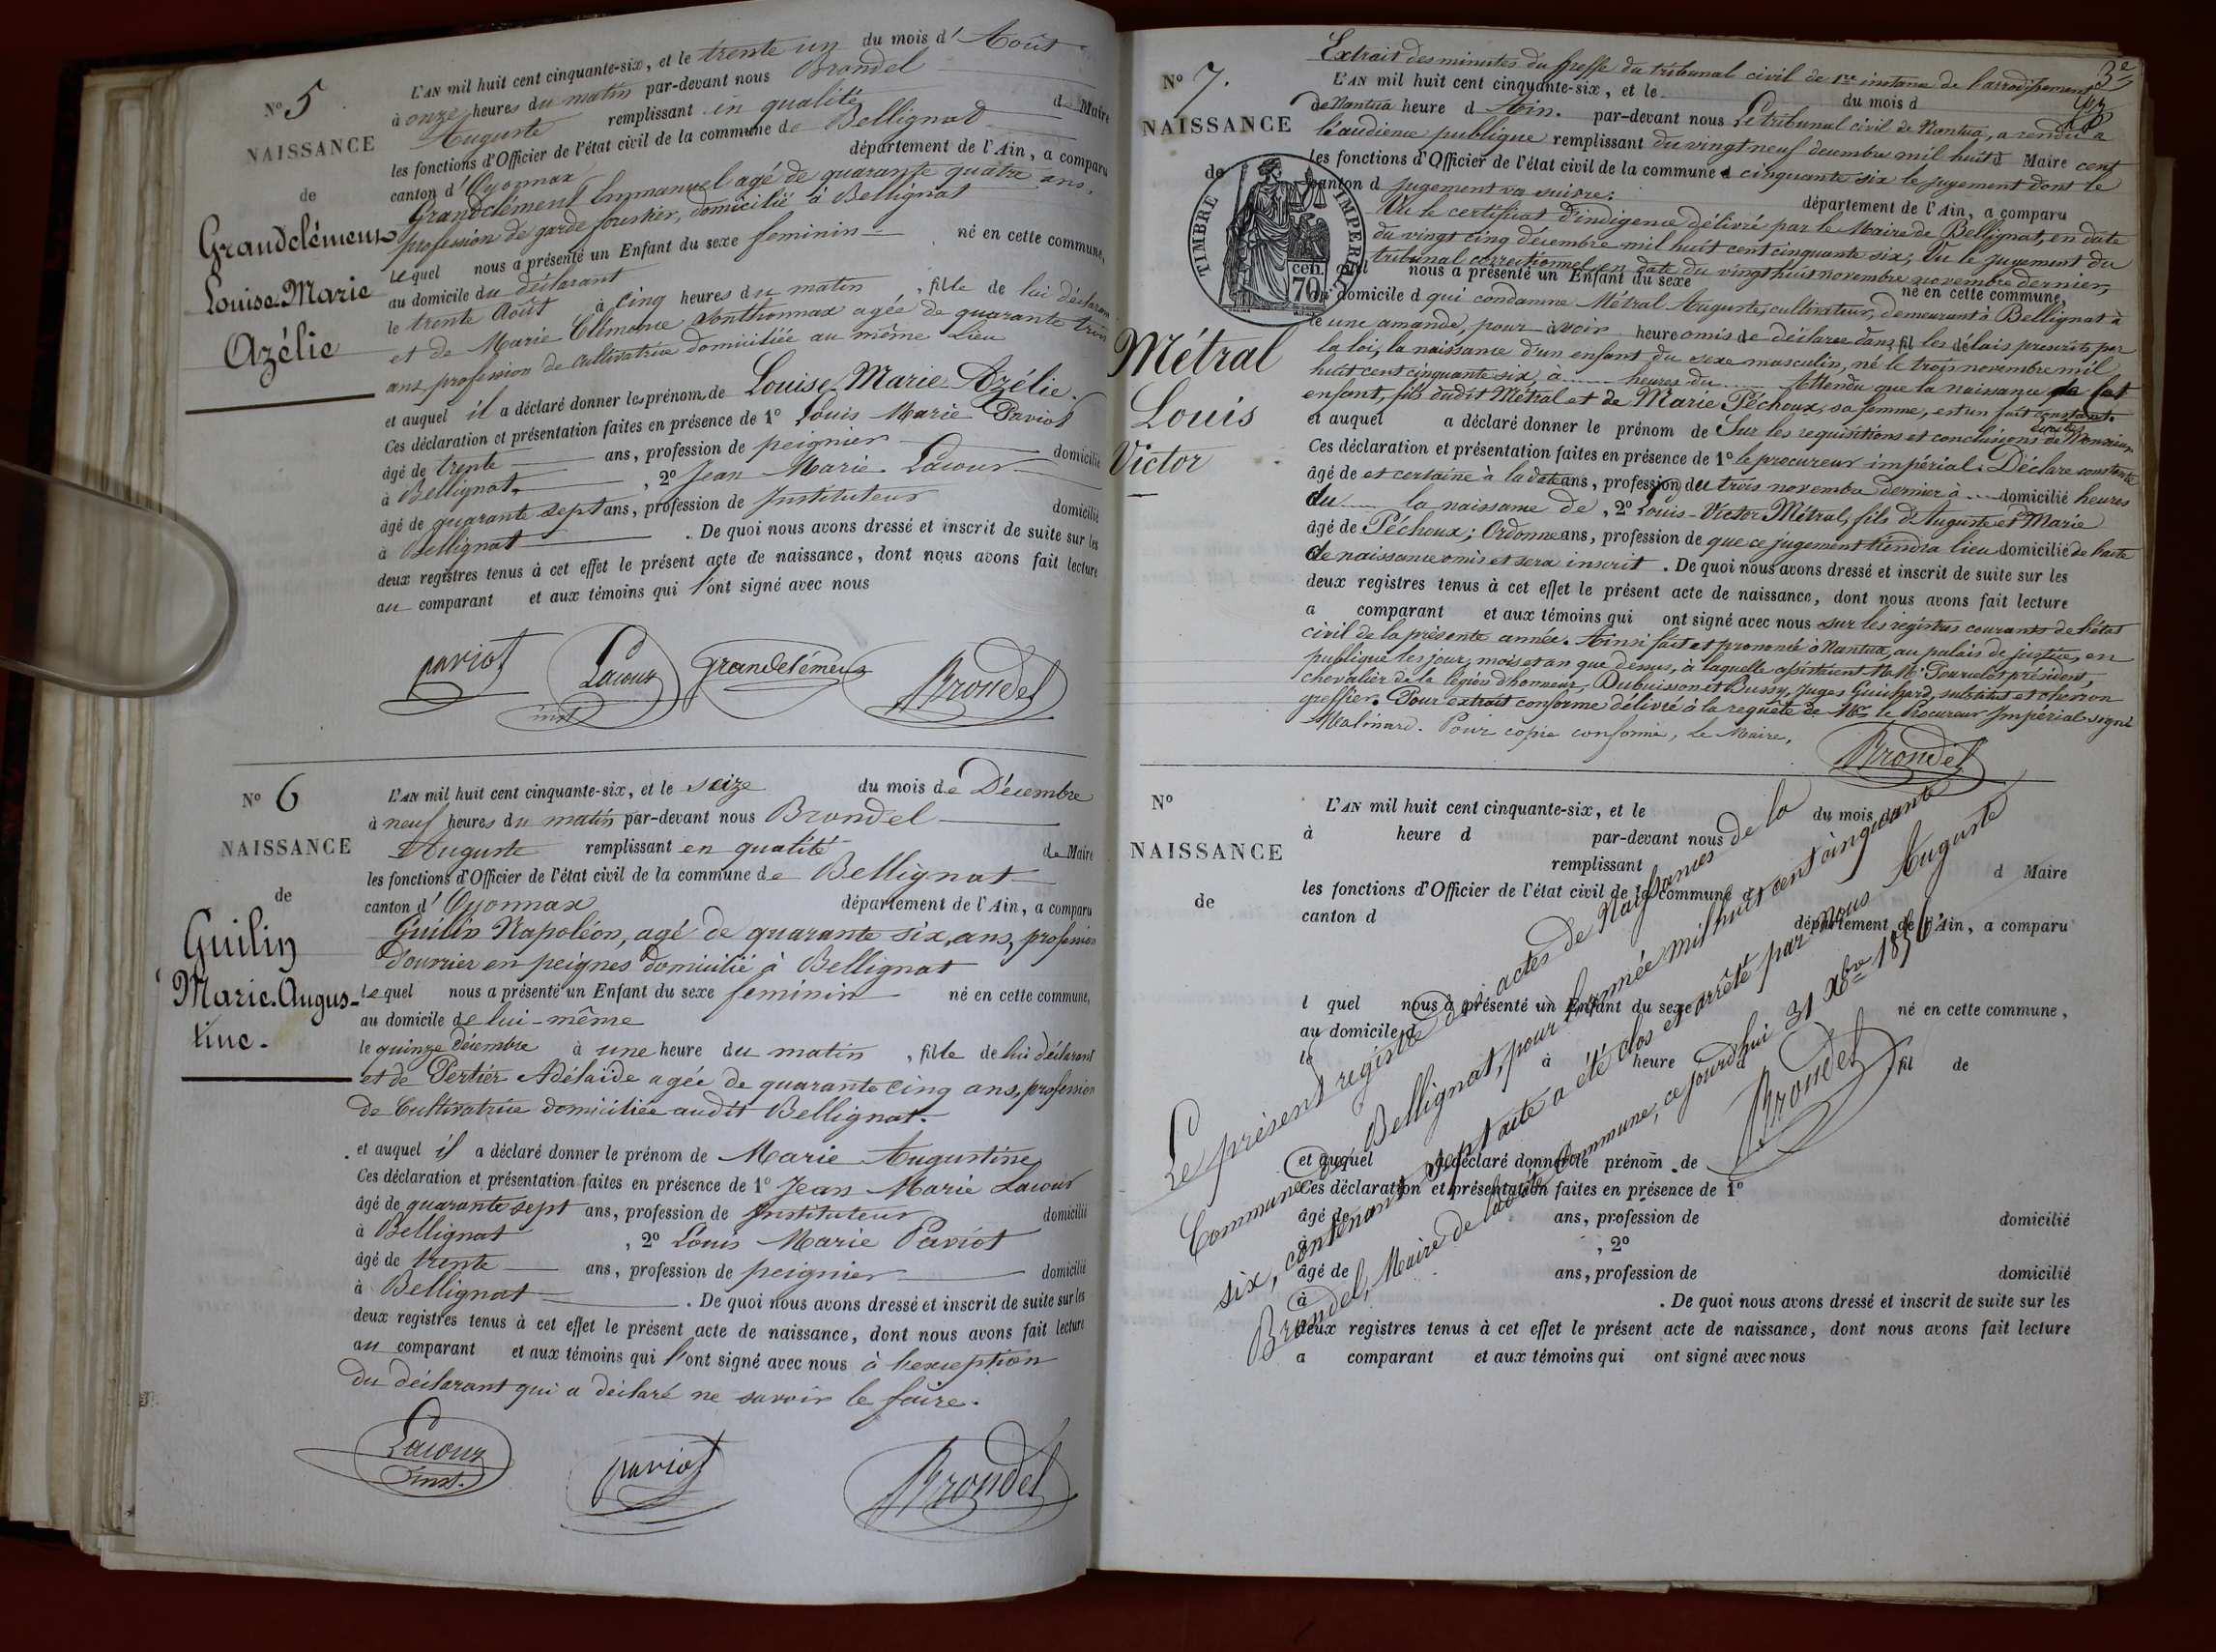 N° 5
NAISSANCE
de
Grandclément
Louise Marie
Azélie
L'AN mil huit cent cinquante-six, et le trente un du mois d'Août
à onze heures du matin par-devant nous Brondel
Auguste remplissant en qualité de Maire
les fonctions d'Officier de l'état civil de la commune de Bellignat
canton d'Oyonnax département de l'Ain, a comparu
Grandclément Emmanuel agé de quarante quatre ans,
profession de garde forestier, domicilié à Bellignat
Lequel nous a présenté un Enfant du sexe feminin né en cette commune,
au domicile du déclarant
le trente Août à cinq heures du matin, fille de lui déclarant
et de Marie Climène Sonthonnax agée de quarante trois
ans profession de cultivatrice domiciliée au même lieu
et auquel il a déclaré donner les prénoms de Louise Marie Azélie.
Ces déclaration et présentation faites en présence de 1° Louis Marie Paviot
âgé de trente ans, profession de peignier domicilié
à Bellignat, 2° Jean Marie Lacour
âgé de quarante sept ans, profession de Instituteur domicilié
à Bellignat. De quoi nous avons dressé et inscrit de suite sur les
deux registres tenus à cet effet le présent acte de naissance, dont nous avons fait lecture
au comparant et aux témoins qui l'ont signé avec nous
paviot Lacour inst Grandclément Brondel
N° 6
NAISSANCE
de
Guilin
Marie.Augus-
tine.
L'AN mil huit cent cinquante-six, et le seize du mois de Décembre
à neuf heures du matin par-devant nous Brondel
Auguste remplissant en qualité de Maire
les fonctions d'Officier de l'état civil de la commune de Bellignat
canton d'Oyonnax département de l'Ain, a comparu
Guilin Napoléon, agé de quarante six, ans, profession
d'ouvrier en peignes domicilié à Bellignat
Lequel nous a présenté un Enfant du sexe feminin né en cette commune,
au domicile de lui-même
le quinze Décembre à une heure du matin, fille de lui déclarant
et de Pertier Adélaide agée de quarante cinq ans, profession
de Cultivatrice domiciliée audit Bellignat.
et auquel il a déclaré donner le prénom de Marie Augustine
Ces déclaration et présentation faites en présence de 1° Jean Marie Lacour
âgé de quarante sept ans, profession de Instituteur domicilié
à Bellignat, 2° Louis Marie Paviot
âgé de trente ans, profession de peignier domicilié
à Bellignat. De quoi nous avons dressé et inscrit de suite sur les
deux registres tenus à cet effet le présent acte de naissance, dont nous avons fait lecture
au comparant et aux témoins qui l'ont signé avec nous à l'exception
du déclarant qui a déclaré ne savoir le faire.
Lacour inst. paviot Brondel
3e
N° 7.
NAISSANCE
de
TIMBRE IMPERIAL
70 cen.
Métral
Louis
Victor
Extrait des minutes du greffe du tribunal civil de 1re instance de l'arrondissement
L'AN mil huit cent cinquante-six, et le du mois d
de Nantua heure d Ain. par-devant nous Le tribunal civil de Nantua, a rendu à
l'audience publique remplissant du vingt neuf décembre mil huit d Maire cent
les fonctions d'Officier de l'état civil de la commune d cinquante six le jugement dont le
canton d jugement va suivre: département de l'Ain, a comparu
Vu le certificat d'indigence délivré par le Maire de Bellignat, en date
du vingt cinq décembre mil huit cent cinquante six; Vu le jugement du
tribunal correctionnel, en date du vingt huit novembre novembre dernier,
quel nous a présenté un Enfant du sexe né en cette commune,
au domicile d qui condamne Métral Auguste, cultivateur, demeurant à Bellignat à
le une amande, pour avoir heure omis de déclarer dans fil les délais prescrits par
la loi, la naissance d'un enfant du sexe masculin, né le trois novembre mil
huit cent cinquante six, à ...... heures du ...... Attendu que la naissance de cet
enfant, fils dudit Métral et de Marie Péchoux, sa femme, est un fait constant.
et auquel a déclaré donner le prénom de Sur les requisitions et conclusions écrites de Monsieur
Ces déclaration et présentation faites en présence de 1° le procureur impérial: Déclare constante
âgé de et certaine à la date ans, profession du trois novembre dernier à ..... domicilié heures
du ..... la naissance de, 2° Louis-Victor Métral, fils d'Auguste et Marie
âgé de Péchoux; Ordonne ans, profession de que ce jugement tiendra lieu domicilié de l'acte
de naissance omis et sera inscrit. De quoi nous avons dressé et inscrit de suite sur les
deux registres tenus à cet effet le présent acte de naissance, dont nous avons fait lecture
a comparant et aux témoins qui ont signé avec nous sur les registres courants de l'état
civil de la présente année. Ainsi fait et prononcé à Nantua, au palais de justice, en
publique les jour, mois et an que dessus, à laquelle assistaient M.M. président,
chevalier de la légion d'honneur, Dubuisson et Bussy, juges Guichard, substitut et
greffier. Pour extrait conforme délivré à la requête de Mr le Procureur Impérial signé
Molinard. Pour copie conforme, Le Maire,
Brondel
N°
NAISSANCE
de
L'AN mil huit cent cinquante-six, et le du mois d
à heure d par-devant nous
remplissant d Maire
les fonctions d'Officier de l'état civil de la commune d
canton d département de l'Ain, a comparu
l quel nous a présenté un Enfant du sexe né en cette commune,
au domicile d
le à heure d fil de
et auquel a déclaré donner le prénom de
Ces déclaration et présentation faites en présence de 1°
âgé de ans, profession de domicilié
à , 2°
âgé de ans, profession de domicilié
à . De quoi nous avons dressé et inscrit de suite sur les
deux registres tenus à cet effet le présent acte de naissance, dont nous avons fait lecture
a comparant et aux témoins qui ont signé avec nous
Le présent registre des actes de Naissances de la
Commune de Bellignat, pour l'année mil huit cent cinquante
six, contenant sept acte a été clos et arrêté par nous Auguste
Brondel, Maire de ladite Commune, ce jourd'hui 31 Xbre 1856.
Brondel